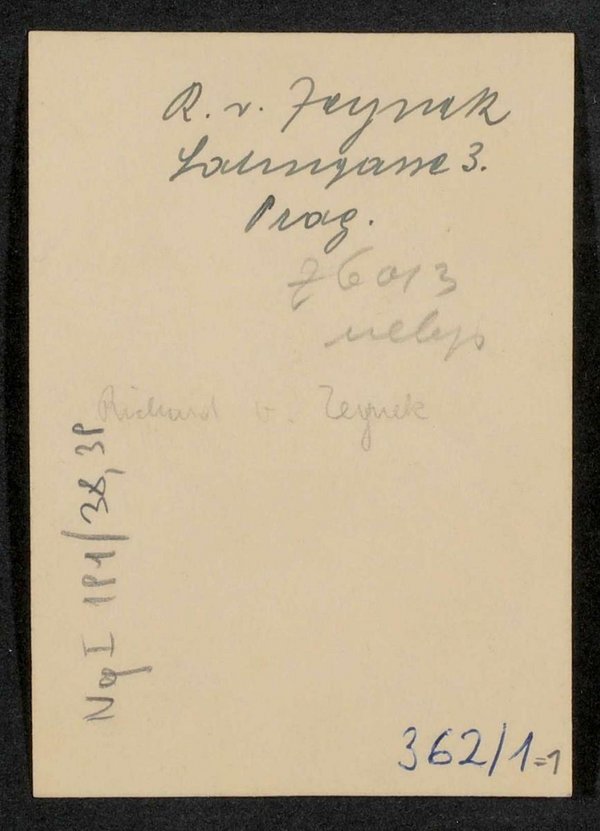 R. v. Zeynek
Salmgasse 3.
Prag.
76013
nebyl
Richard v. Zeynek
Ng I 1P1/38, 3P
362/1=1